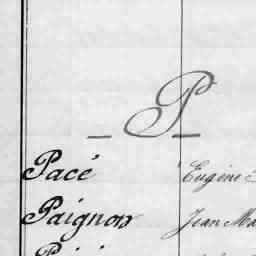 P
Pacé Eugène
Paignon Jean